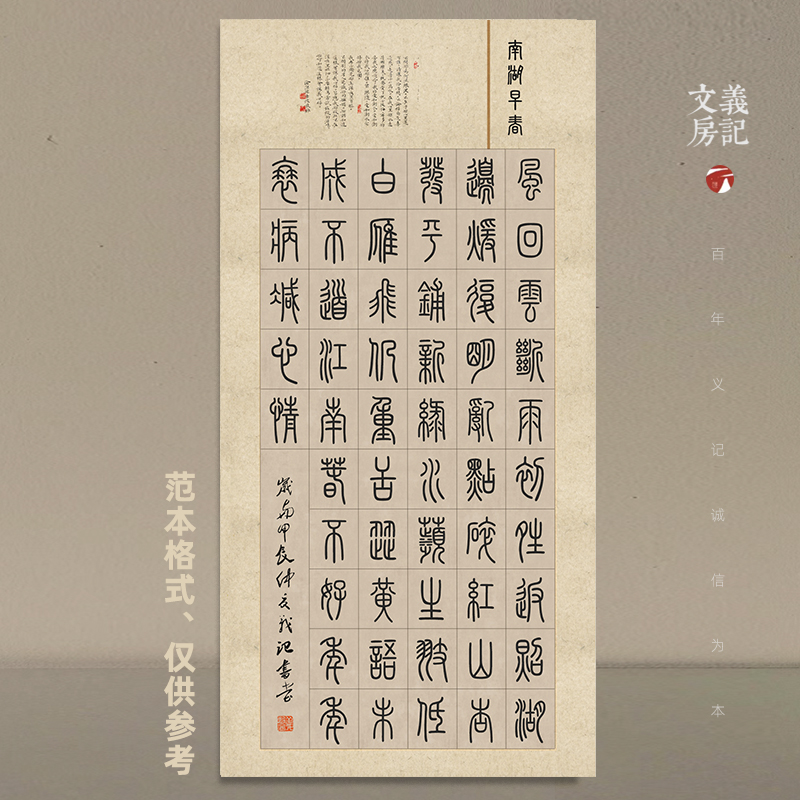 南湖早春
風回雲斷雨初晴返照湖
邊煖復明亂點碎紅山杏
發平鋪新綠水蘋生翅低
白雁飛仍重舌澀黃語未
成不道江南春不好年年
衰病減心情
歲甲辰仲夏義记書堂
義記
文房
百年义记诚信为本
范本格式、仅供参考